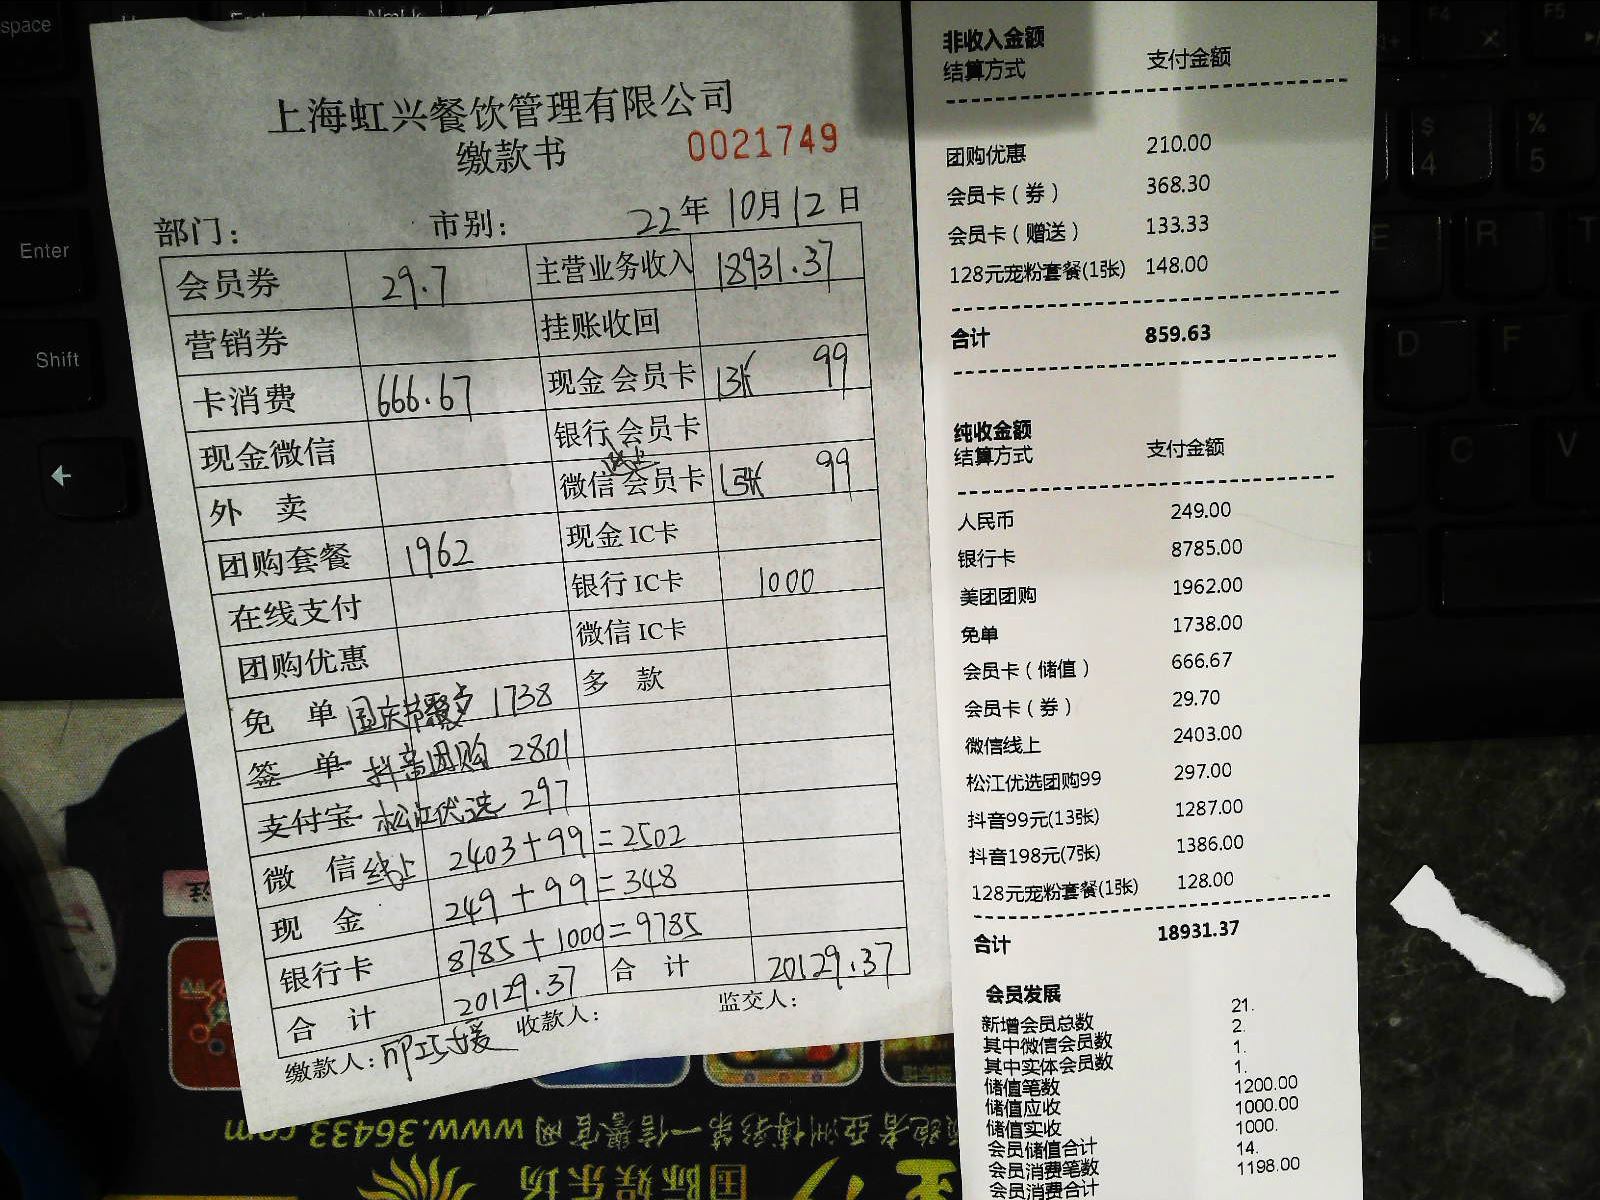 上海虹兴餐饮管理有限公司
缴款书 0021749
部门： 市别： 22年10月12日
会员券 29.7 主营业务收入 18931.37
营销券 挂账收回
卡消费 666.67 现金会员卡 1张 99
现金微信 银行会员卡
外 卖 微信线上会员卡 1张 99
团购套餐 1962 现金IC卡
在线支付 银行IC卡 1000
团购优惠 微信IC卡
免 单 国庆节聚 1738 多 款
签 单 抖音团购 2801
支付宝 松江优选 297
微 信线上 2403+99=2502
现 金 249+99=348
银行卡 8785+1000=9785
合 计 20129.37 合 计 20129.37
缴款人： 收款人： 监交人：
非收入金额
结算方式 支付金额
团购优惠 210.00
会员卡（券） 368.30
会员卡（赠送） 133.33
128元宠粉套餐(1张) 148.00
合计 859.63
纯收金额
结算方式 支付金额
人民币 249.00
银行卡 8785.00
美团团购 1962.00
免单 1738.00
会员卡（储值） 666.67
会员卡（券） 29.70
微信线上 2403.00
松江优选团购99 297.00
抖音99元(13张) 1287.00
抖音198元(7张) 1386.00
128元宠粉套餐(1张) 128.00
合计 18931.37
会员发展
新增会员总数 21.
其中微信会员数 2.
其中实体会员数 1.
储值笔数 1.
储值应收 1200.00
储值实收 1000.00
会员储值合计 1000.
会员消费笔数 14.
会员消费合计 1198.00
space
Enter
Shift
NmLk
F4
F5
$
4
%
5
E
R
T
D
F
C
V
www.36433.com
国际娱乐场